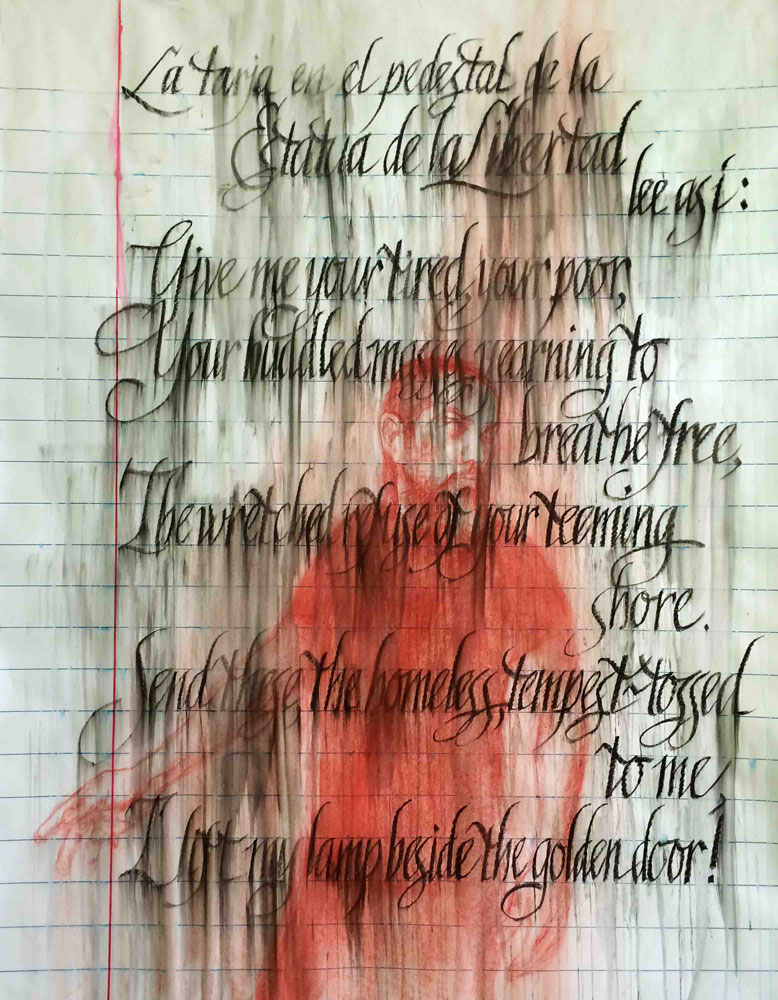 La tarja en el pedestal de la
Estatua de la Libertad
lee asi:
Give me your tired, your poor,
Your huddled masses yearning to
breathe free,
The wretched refuse of your teeming
shore.
Send these, the homeless, tempest-tossed
to me,
I lift my lamp beside the golden door!